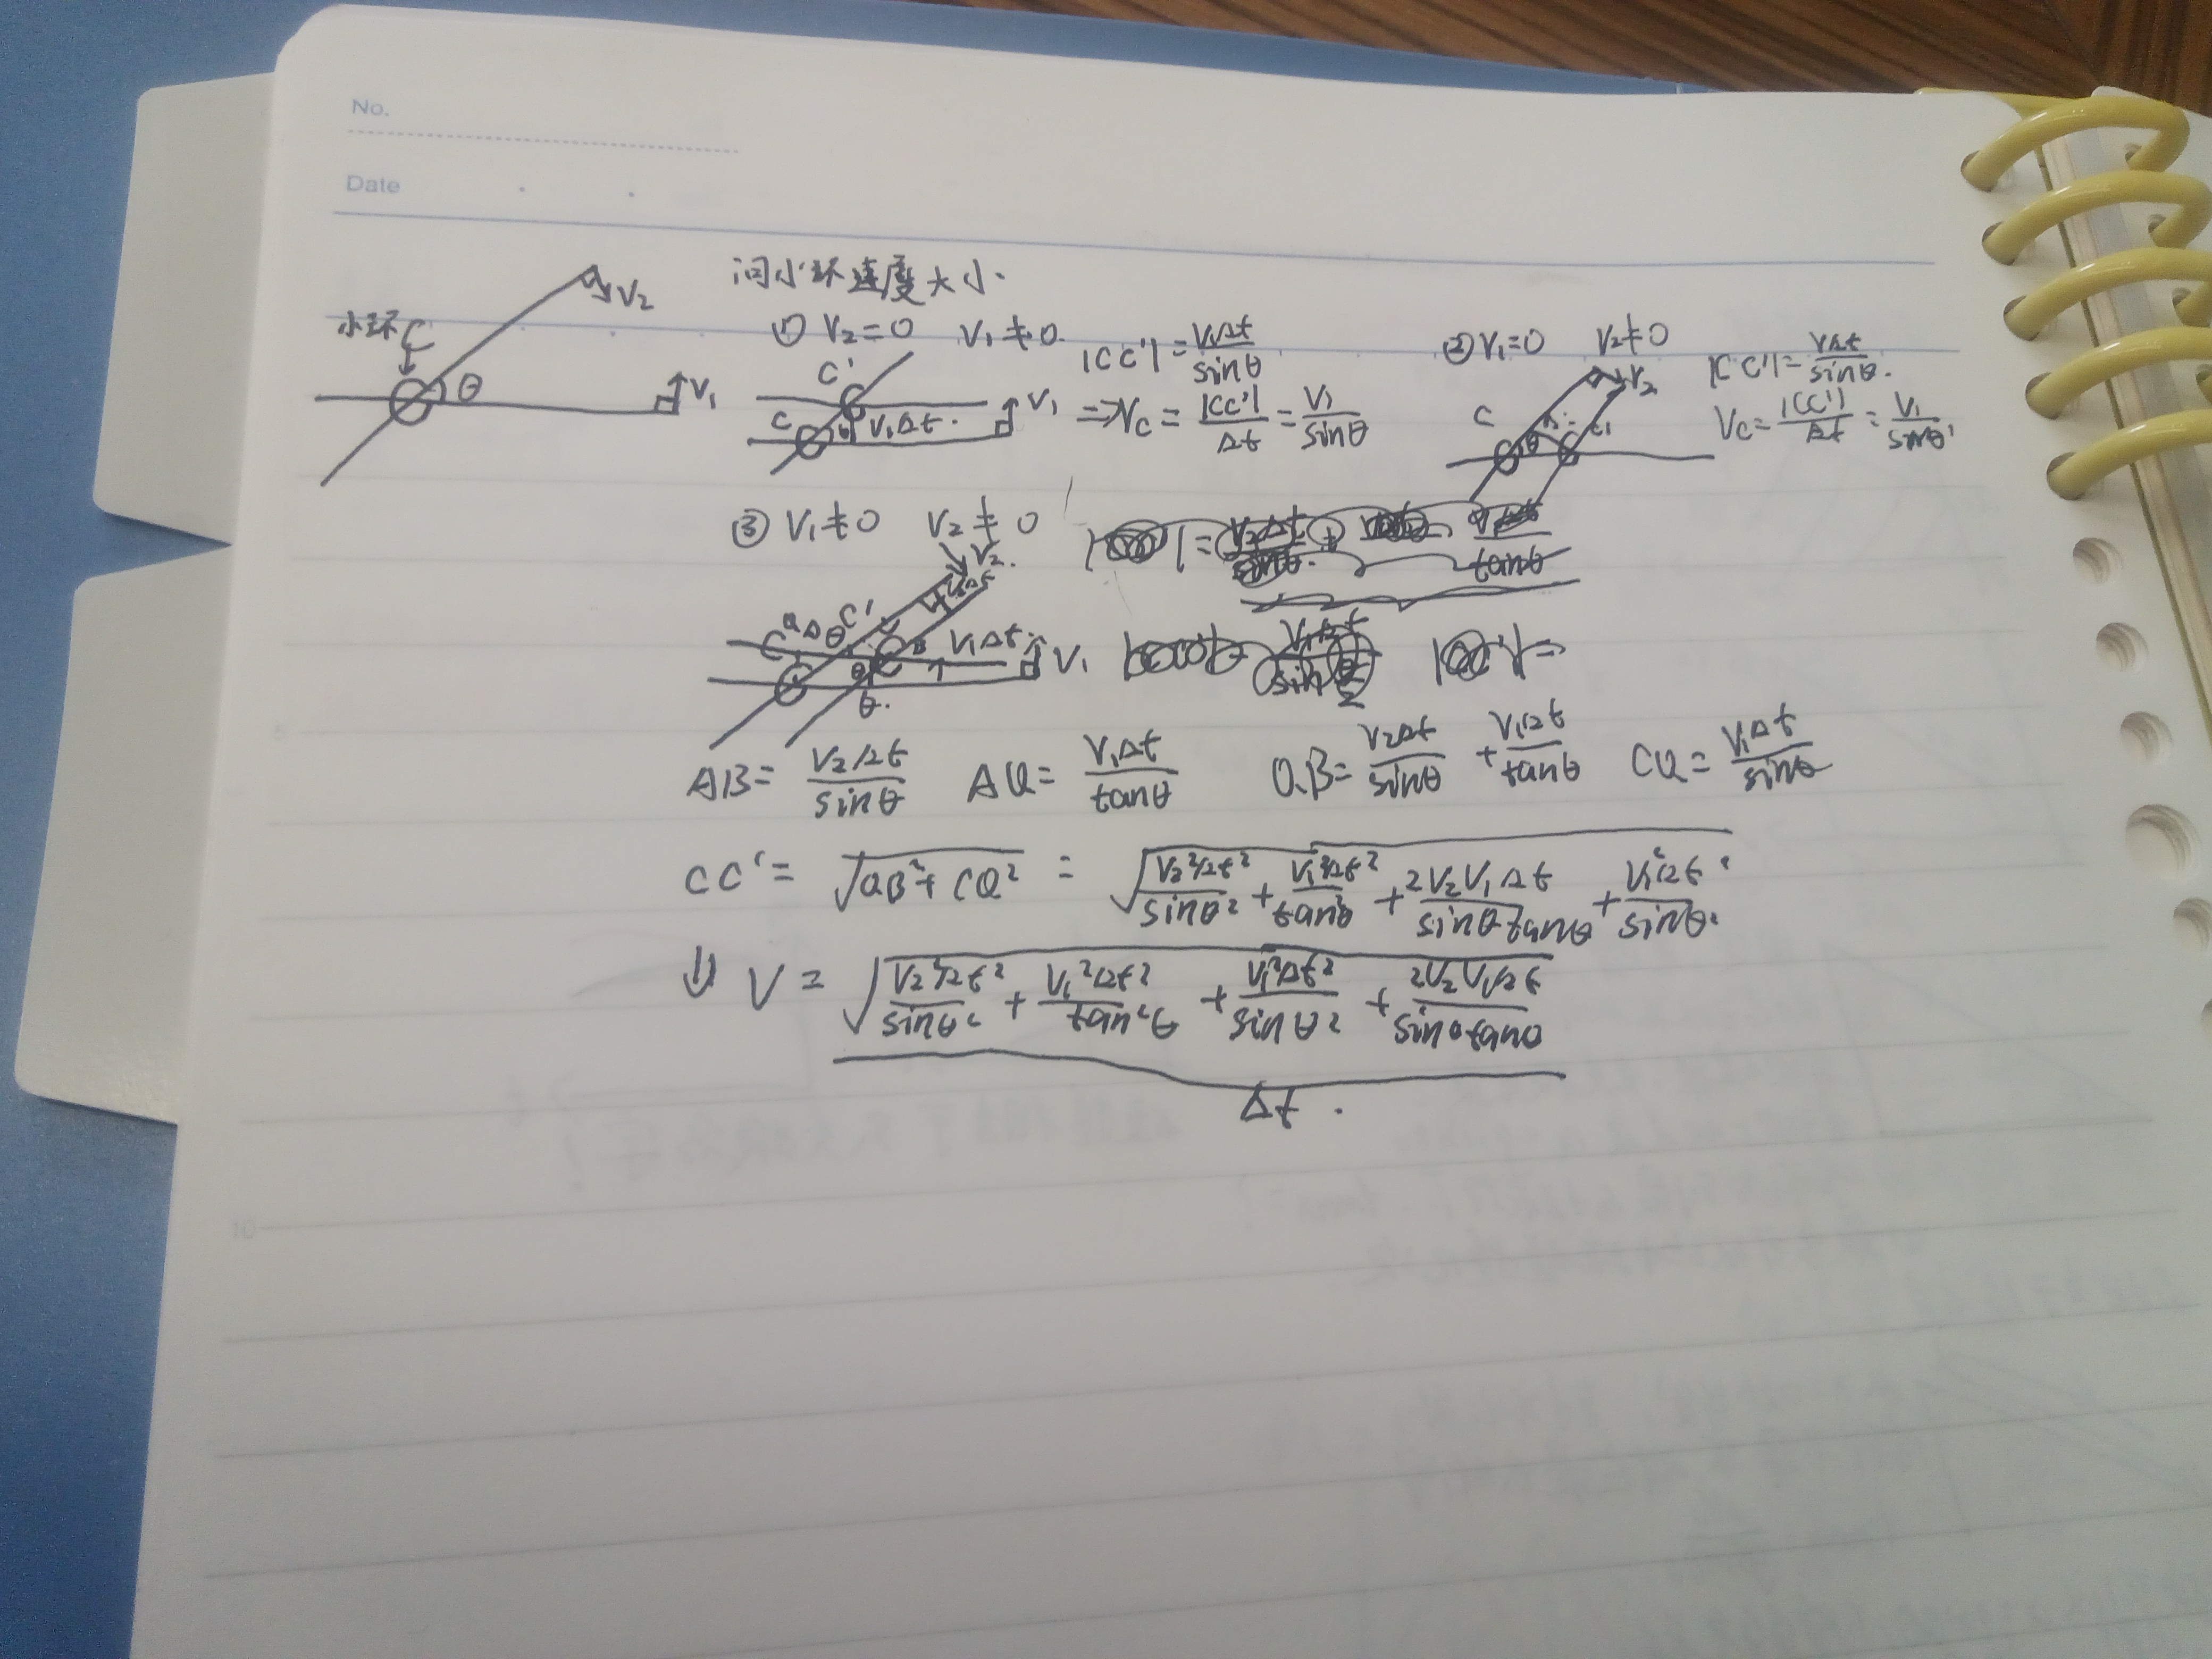 No.
Date
问小环速度大小.
小环C
θ
V₂
V₁
① V₂=0 V₁≠0.
C'
C
θ
V₁Δt.
V₁
|CC'|=V₁Δt/sinθ
⇒Vc=|CC'|/Δt=V₁/sinθ
② V₁=0 V₂≠0
C
θ
C'
V₂
|CC'|=VΔt/sinθ.
Vc=|CC'|/Δt=V₁/sinθ.
③ V₁≠0 V₂≠0
V₂.
C'
θ
B
V₁Δt.
V₁
θ.
AB=V₂Δt/sinθ AQ=V₁Δt/tanθ QB=V₂Δt/sinθ+V₁Δt/tanθ CQ=V₁Δt/sinθ
CC'=√(QB²+CQ²)=√(V₂²Δt²/sinθ²+V₁²Δt²/tan²θ+2V₂V₁Δt/sinθtanθ+V₁²Δt²/sinθ²)
⇓ V=√(V₂²Δt²/sinθ²+V₁²Δt²/tan²θ+V₁²Δt²/sinθ²+2V₂V₁Δt/sinθtanθ)/Δt.
5
10